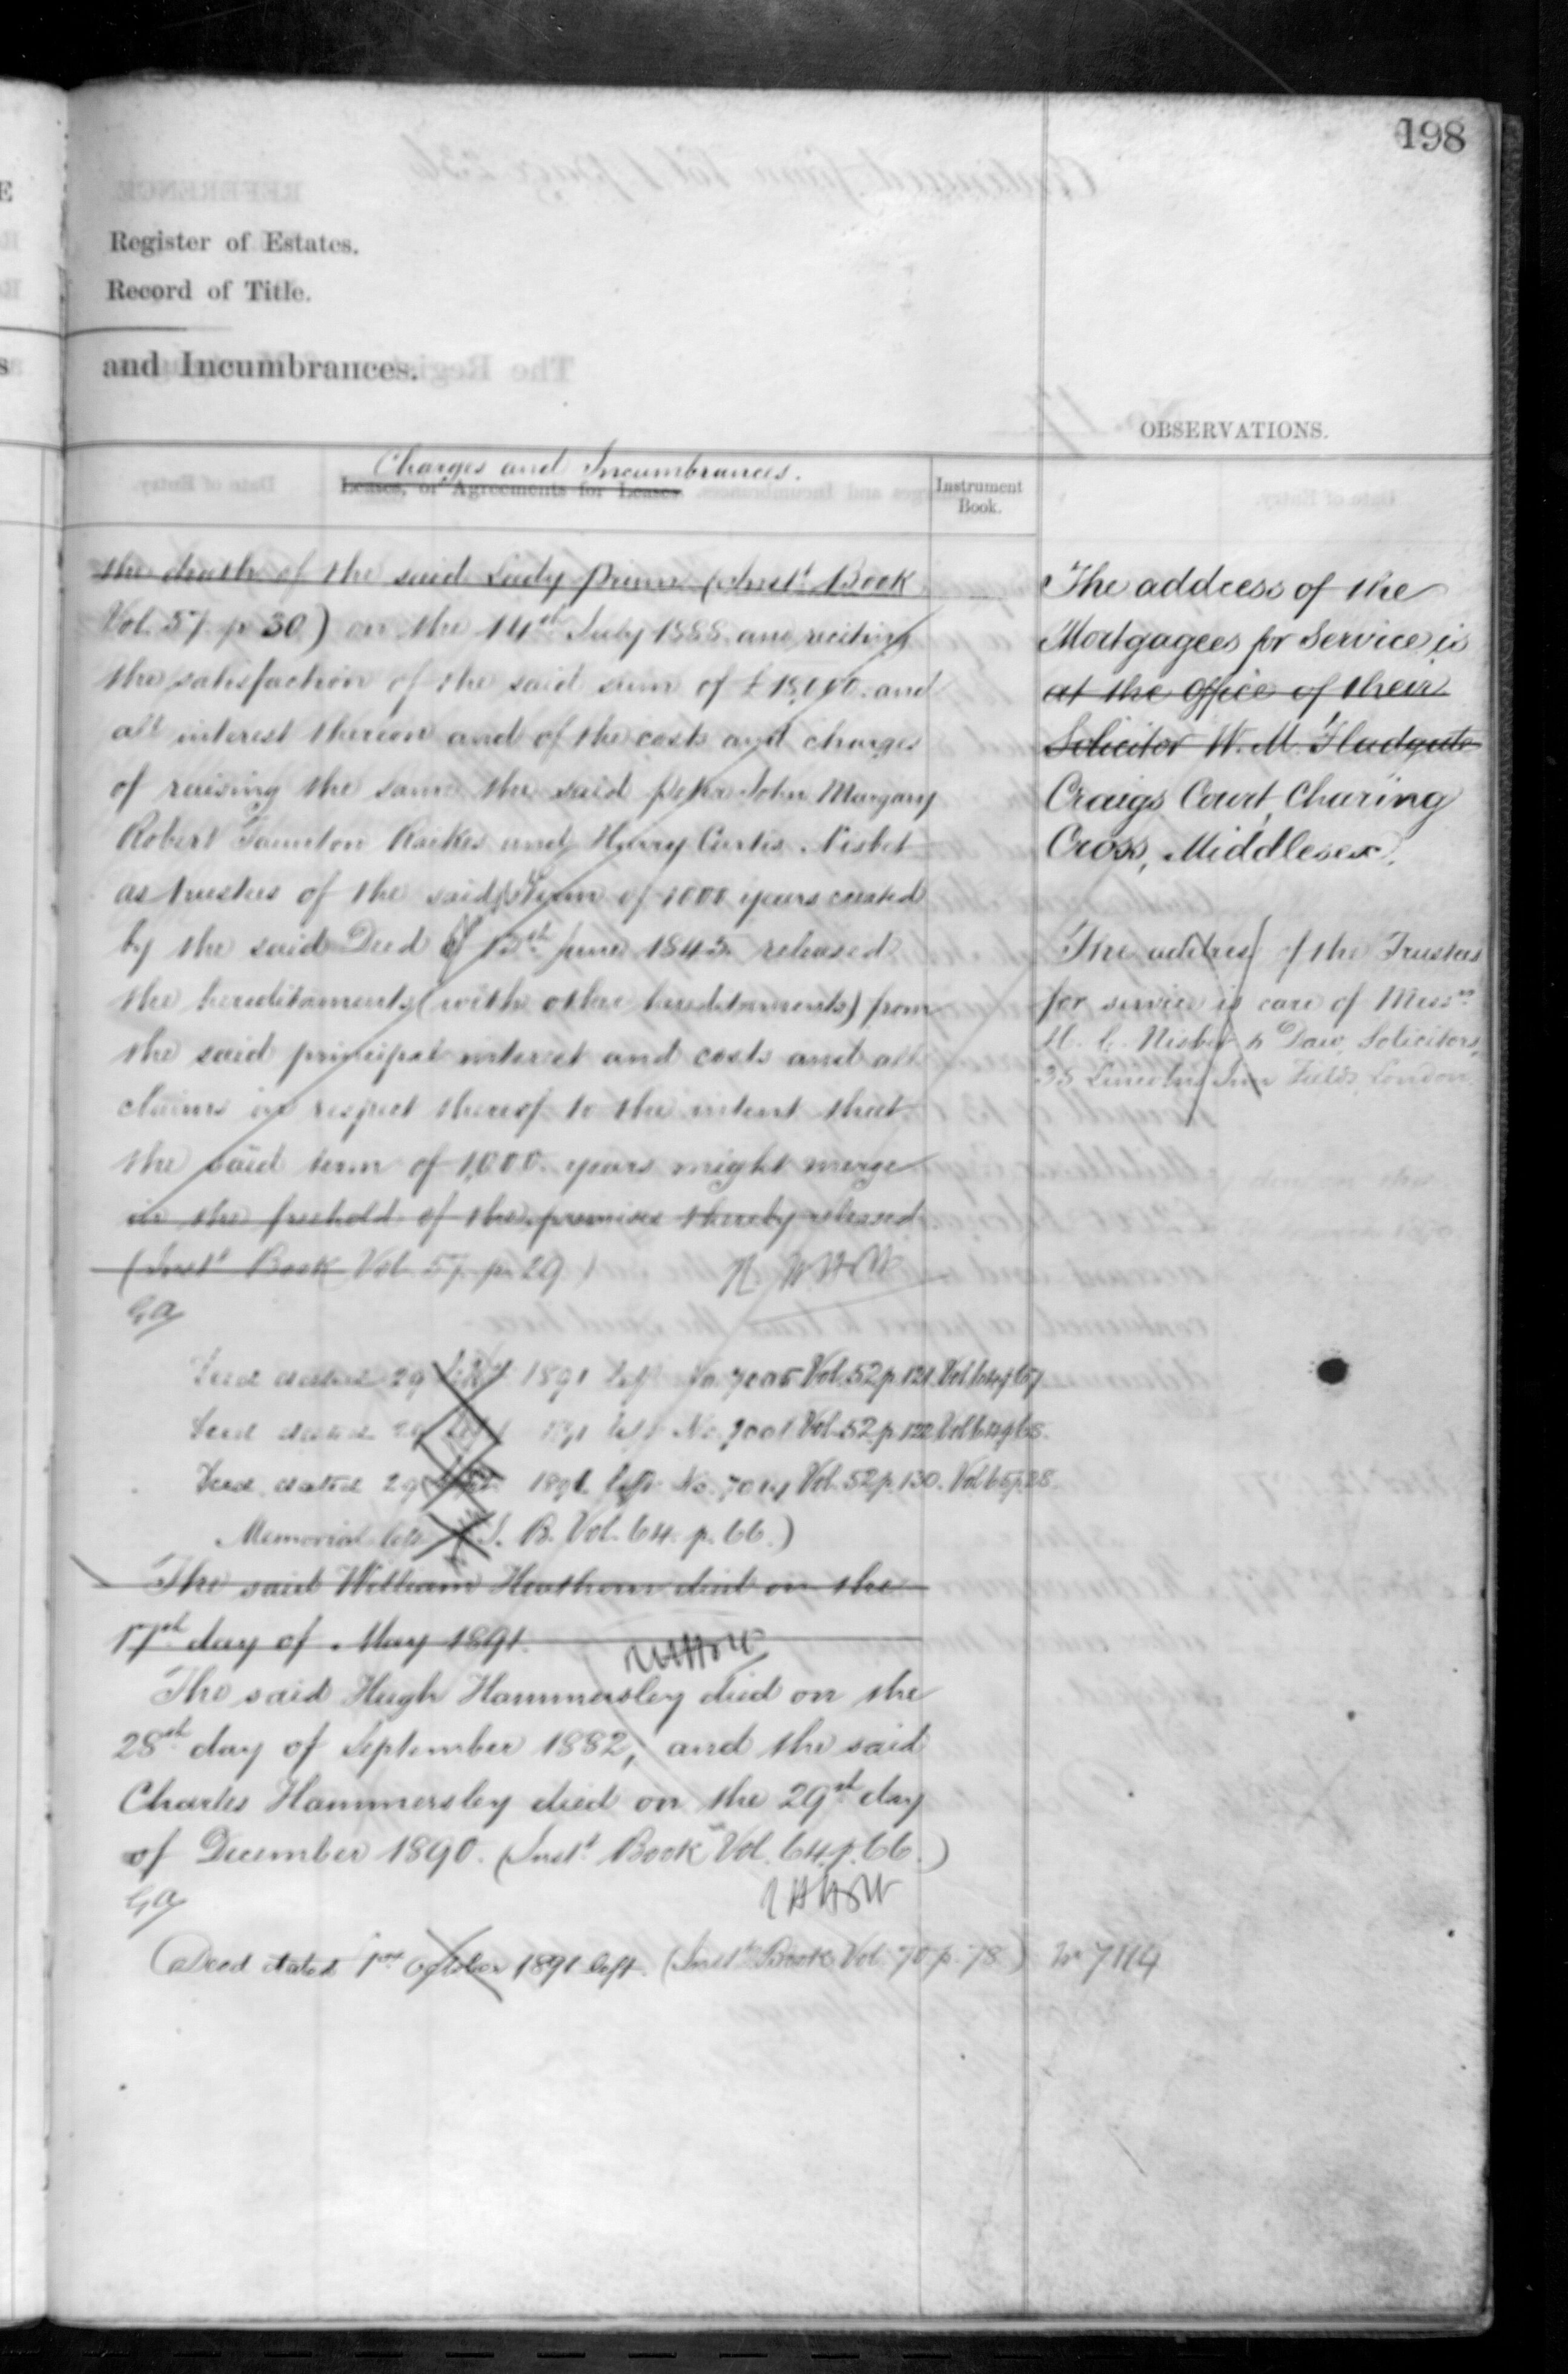 198
Register of Estates.
Record of Title.
and Incumbrances.
OBSERVATIONS.
Charges and Incumbrances.
Leases, or Agreements for Leases
Instrument
Book.
the death of the said Lady Prinn (Inst^t Book
Vol. 57. p 30) on the 14th July 1888 and reciting
the satisfaction of the said sum of £15,000. and
all interest thereon and of the costs and charges
of raising the same the said Peter John Margary
Robert Taunton Raikes and Harry Curtis Nisbet
as trustees of the said term of 1000 years created
by the said Deed of 12th June 1845 released
the hereditaments (with other hereditaments) from
the said principal interest and costs and all
claims in respect thereof to the intent that
the said term of 1,000 years might merge
in the freehold of the premises thereby released
(Inst^t Book Vol. 57 p. 29)
GA
Deed dated 29 Sept 1891 left No. 7005 Vol. 52 p. 121. Vol 64 p 67
Deed dated 29 Sept 1891 left No. Vol. 52 p. 122 Vol 64 p 65.
Deed dated 29 Sept 1891. left No. 7014 Vol. 52 p. 130. Vol 65 p. 28.
Memorial left I. B. Vol. 64. p. 66.)
The said William died on the
17th day of May 1891.
The said Hugh Hammersley died on the
28th day of September 1882, and the said
Charles Hammersley died on the 29th day
of December 1890. (Inst^t Book Vol. 64. p. 66.)
GA
Deed dated 1st October 1891 left. (Inst^t Book Vol. 70 p. 78) No 7114
The address of the
Mortgagees for Service is
at the Office of their
Solicitor W. M. Fladgate
Craigs Court, Charing
Cross, Middlesex.
The address of the Trustees
for service is care of Mess^rs
H. C. Nisbet & Daw, Solicitors,
35 Lincolns Inn Fields, London.